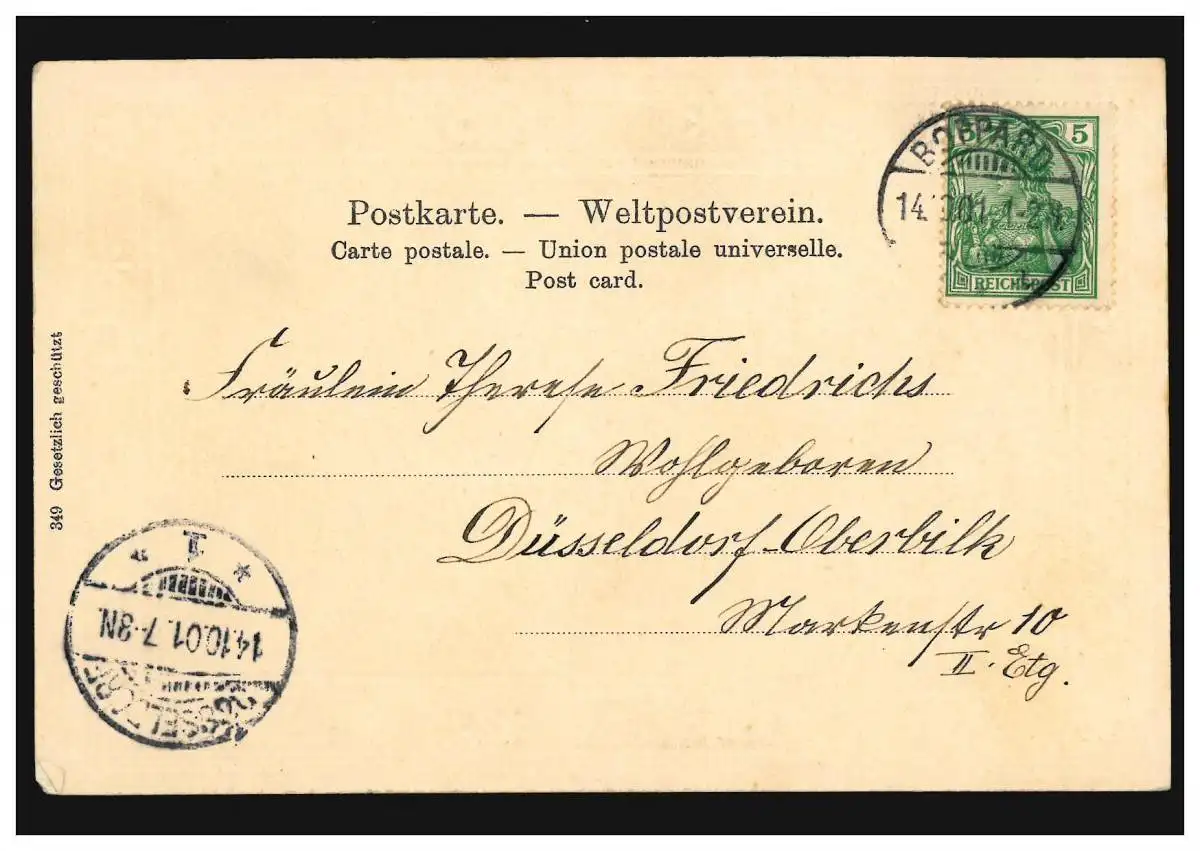 5 5
BOPPARD
14.10.01. 1-2N.
REICHSPOST
Postkarte. — Weltpostverein.
Carte postale. — Union postale universelle.
Post card.
Fräulein Therese Friedrichs
Wohlgeboren
Düsseldorf-Oberbilk
Markenstr 10
II. Etg.
349 Gesetzlich geschützt
DÜSSELDORF
14.10.01. 7-8N.
* 1 *